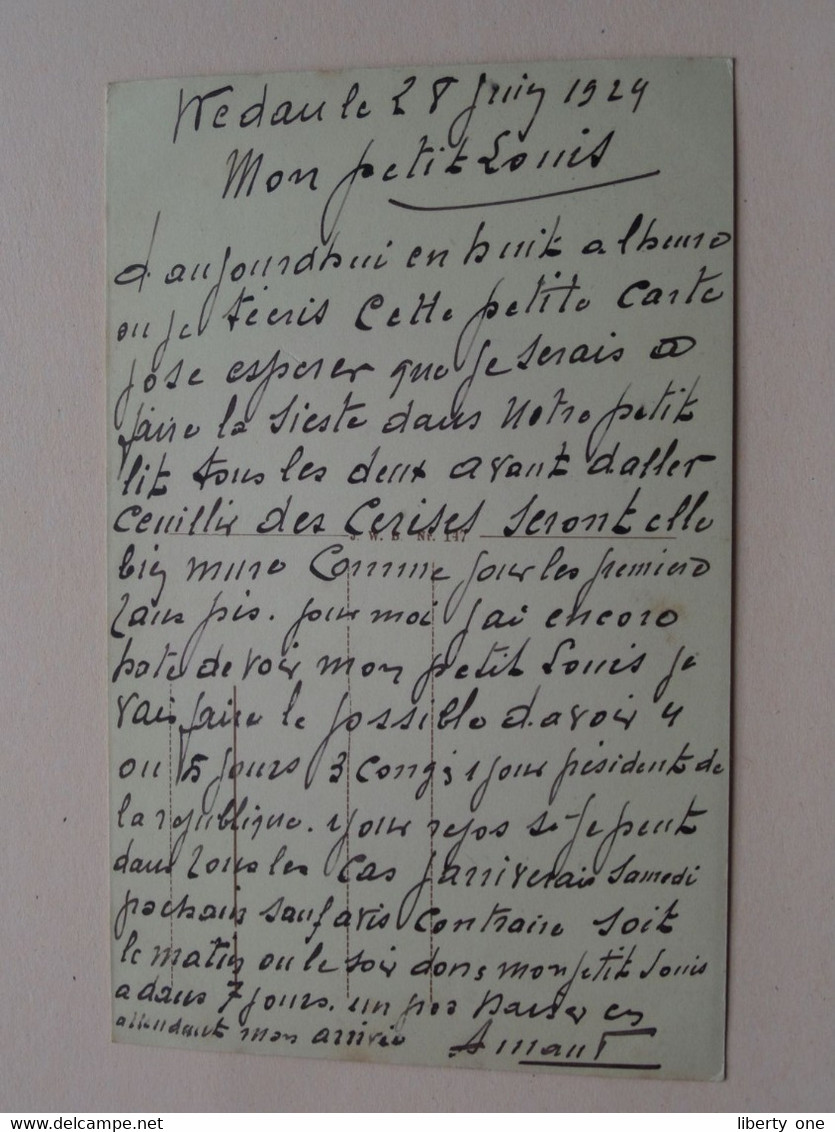 Wedau le 28 juin 1924
Mon petit Louis
d aujourdhui en huit a lheure
ou je técris cette petite carte
jose esperer que je serais a
faire la sieste dans notre petit
lit tous les deux avant daller
ceuillir des cerises seront elle
J. W. B. Nr. 147
bien mure comme pour les premiere
tans pis. pour moi jai encore
hate de voir mon petit Louis je
vais faire le possible davoir 4
ou 5 jours 3 congé 1 jour président de
la republique. 1 jour repos si je peut
dans tous les cas jarriverais Samedi
prochain sauf avis contraire soit
le matin ou le soir donc mon petit Louis
a dans 7 jours. un gros baiser en
attendant mon arrivée
liberty one